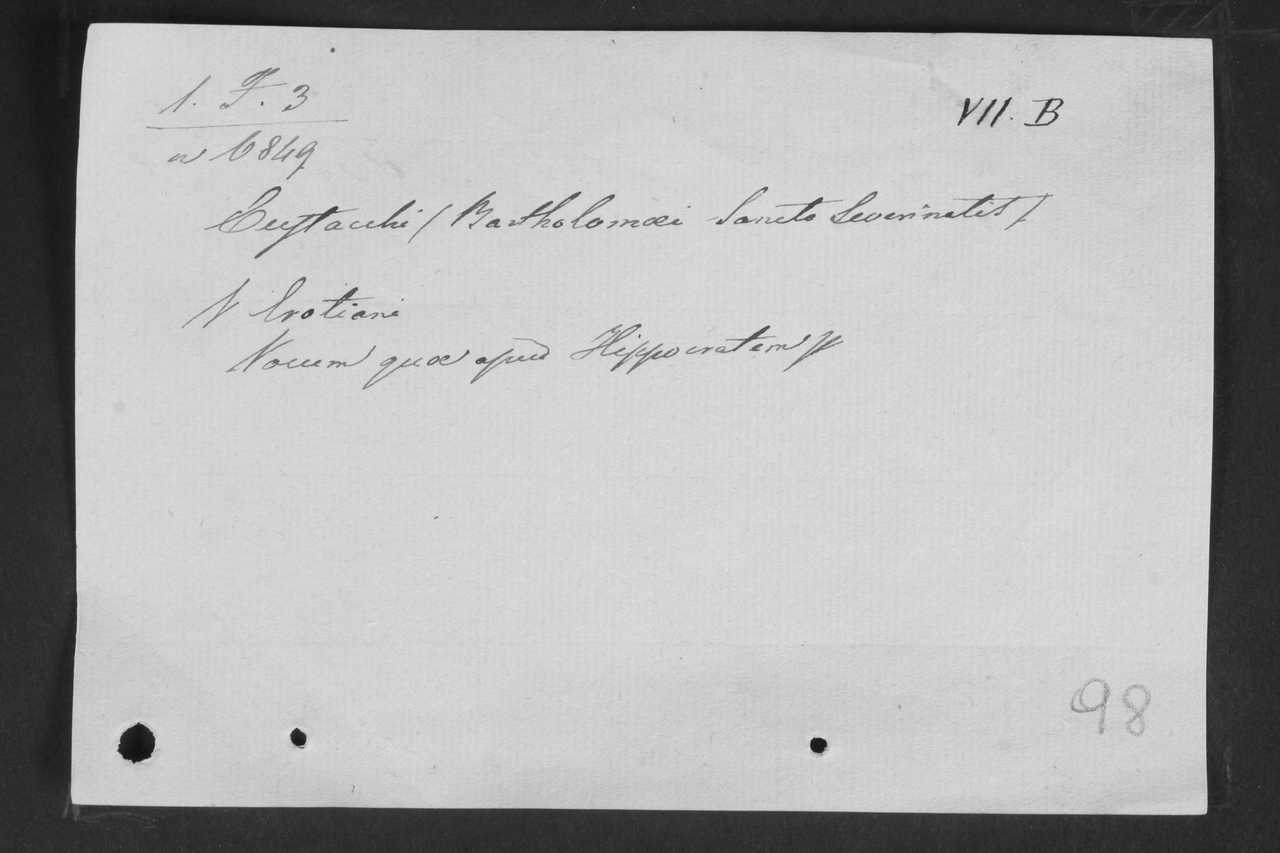 1. F. 3
VII. B
n 6849
Eustachi (Bartholomæi Sancto Severinatis)
V Erotiani
Vocum quæ apud Hippocratem
98